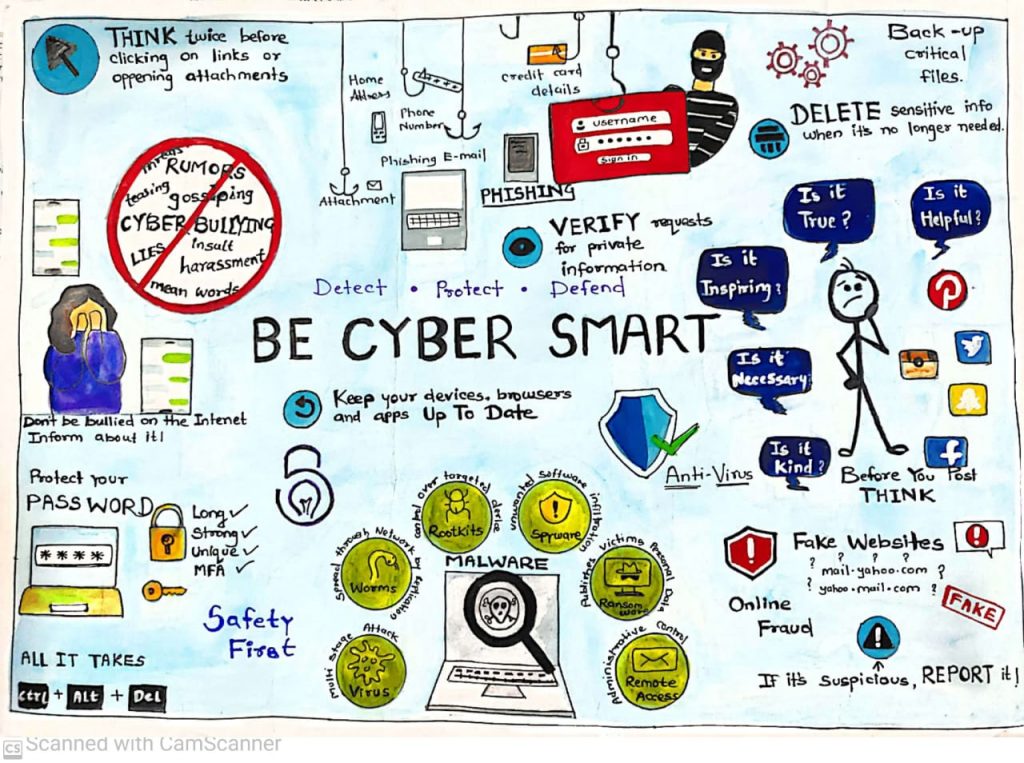 THINK twice before
clicking on links or
oppening attachments
Home
Address
Phone
Number
Phishing E-mail
Attachment
credit card
details
username
sign in
PHISHING
Back-up
critical
files.
DELETE sensitive info
when it's no longer needed.
threats
RUMORS
teasing
gossiping
CYBER BULLYING
LIES
insult
harassment
mean words
VERIFY requests
for private
information
Detect • Protect • Defend
BE CYBER SMART
Is it
True?
Is it
Helpful?
Is it
Inspiring?
Is it
Necessary
Is it
Kind?
Before You Post
THINK
Don't be bullied on the Internet
Inform about it!
Keep your devices, browsers
and apps Up To Date
Anti-Virus
Protect your
PASSWORD
****
Long ✓
Strong ✓
Unique ✓
MFA ✓
Safety
First
ALL IT TAKES
Ctrl + Alt + Del
MALWARE
Multi Stage Attack
Virus
Spread through Network by replication
Worms
control over targeted device
Rootkits
unwanted Software infiltration
Spyware
Publishes victims Personal Data
Ransom
ware
Administrative control
Remote
Access
Fake Websites
? ? ?
mail.yahoo.com ?
? yahoo.mail.com ?
FAKE
Online
Fraud
If it's suspicious, REPORT it!
CS Scanned with CamScanner